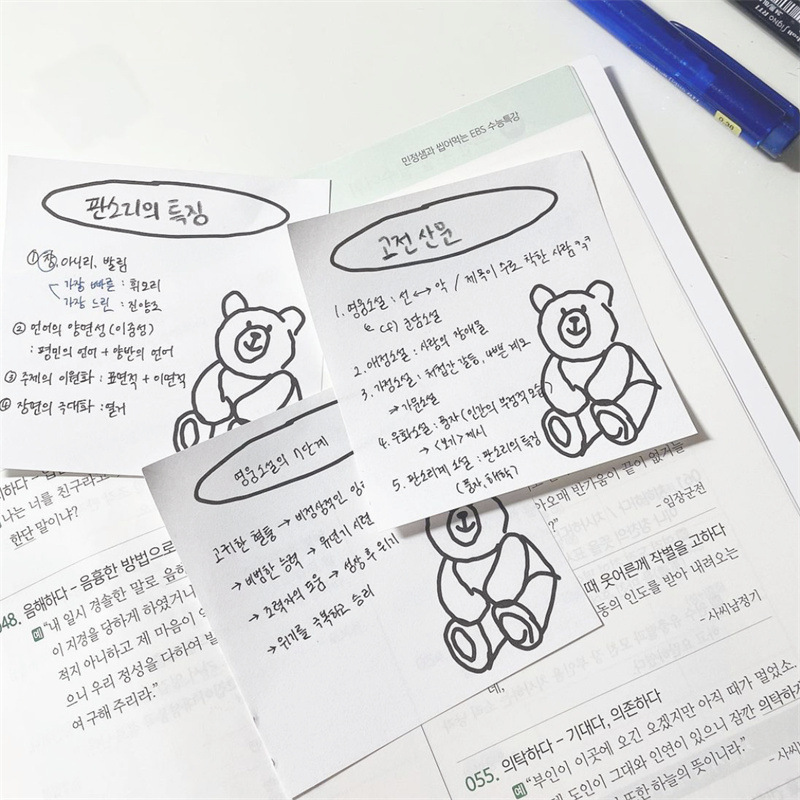 민정샘과 씹어먹는 EBS 수능특강
판소리의 특징
① 창, 아니리, 발림
가장 빠른 : 휘모리
가장 느린 : 진양조
② 언어의 양면성 (이중성)
: 평민의 언어 + 양반의 언어
③ 주제의 이원화 : 표면적 + 이면적
④ 장면의 극대화 : 열거
고전 산문
1. 영웅소설 : 선 ↔ 악 / 제목이 주로 착한 사람
cf) 군담소설
2. 애정소설 : 사랑의 장애물
3. 가정소설 : 처첩간 갈등, 계모
→ 가문소설
4. 우화소설 : 풍자 (인간의 부정적 모습)
→ <보기> 제시
5. 판소리계 소설 : 판소리의 특징
(풍자, 해학)
영웅소설의 7단계
고귀한 혈통 → 비정상적인
→ 비범한 능력 → 유년기 시련
→ 조력자의 도움 → 성장 후 위기
→ 위기를 극복하고 승리
나는 너를 친구라
한단 말이냐?
048. 음해하다 – 음흉한 방법으로
예 “내 일시 경솔한 말로 음해
이 지경을 당하게 하였거니
적지 아니하고 제 마음이
으니 우리 정성을 다하여
여 구해 주리라.”
아오매 반가움이 끝이 없거늘
?” – 임장군전
때 웃어른께 작별을 고하다
동의 인도를 받아 내려오는
– 사씨남정기
데,
055. 의탁하다 – 기대다, 의존하다
예 “부인이 이곳에 오긴 오겠지만 아직 때가 멀었소.
도인이 그대와 인연이 있으니 잠깐 의탁하
또한 하늘의 뜻이니라.” – 사씨
0.38